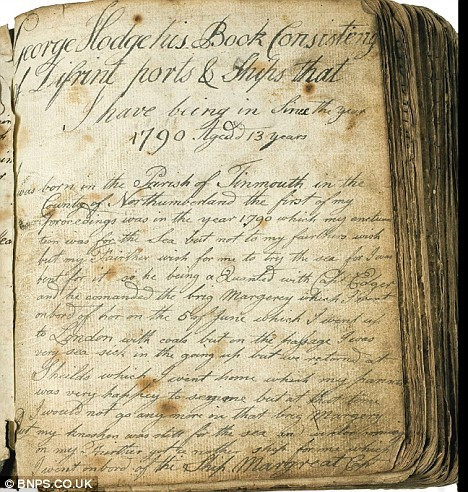 George Hodge his Book Consisteng
of Difrint ports & Ships that
I have being in Since the year
1790 Aged 13 years
I was born in the Parish of Tinmouth in the
County of Northumberland the first of my
proceedings was in the year 1790 which my enclina
tion was for the Sea but not to my fairthers wish
but my Fairther wish for me to try the sea for I was
bent for it so he being a Quanted with Edger
and he comanded the brig Margerey which I went
on bord of hor on the 5 of June which I went up
to London with coals but on the passage I was
very sea sick in the going up but we returned at
Shuilds which I went home whash my parence
was very happey to see me but at that time
I would not go any more in that brig Margery
but my was still for the sea
in my got a nother ship for me which
I went on bord of the Ship Margreat
© BNPS.CO.UK